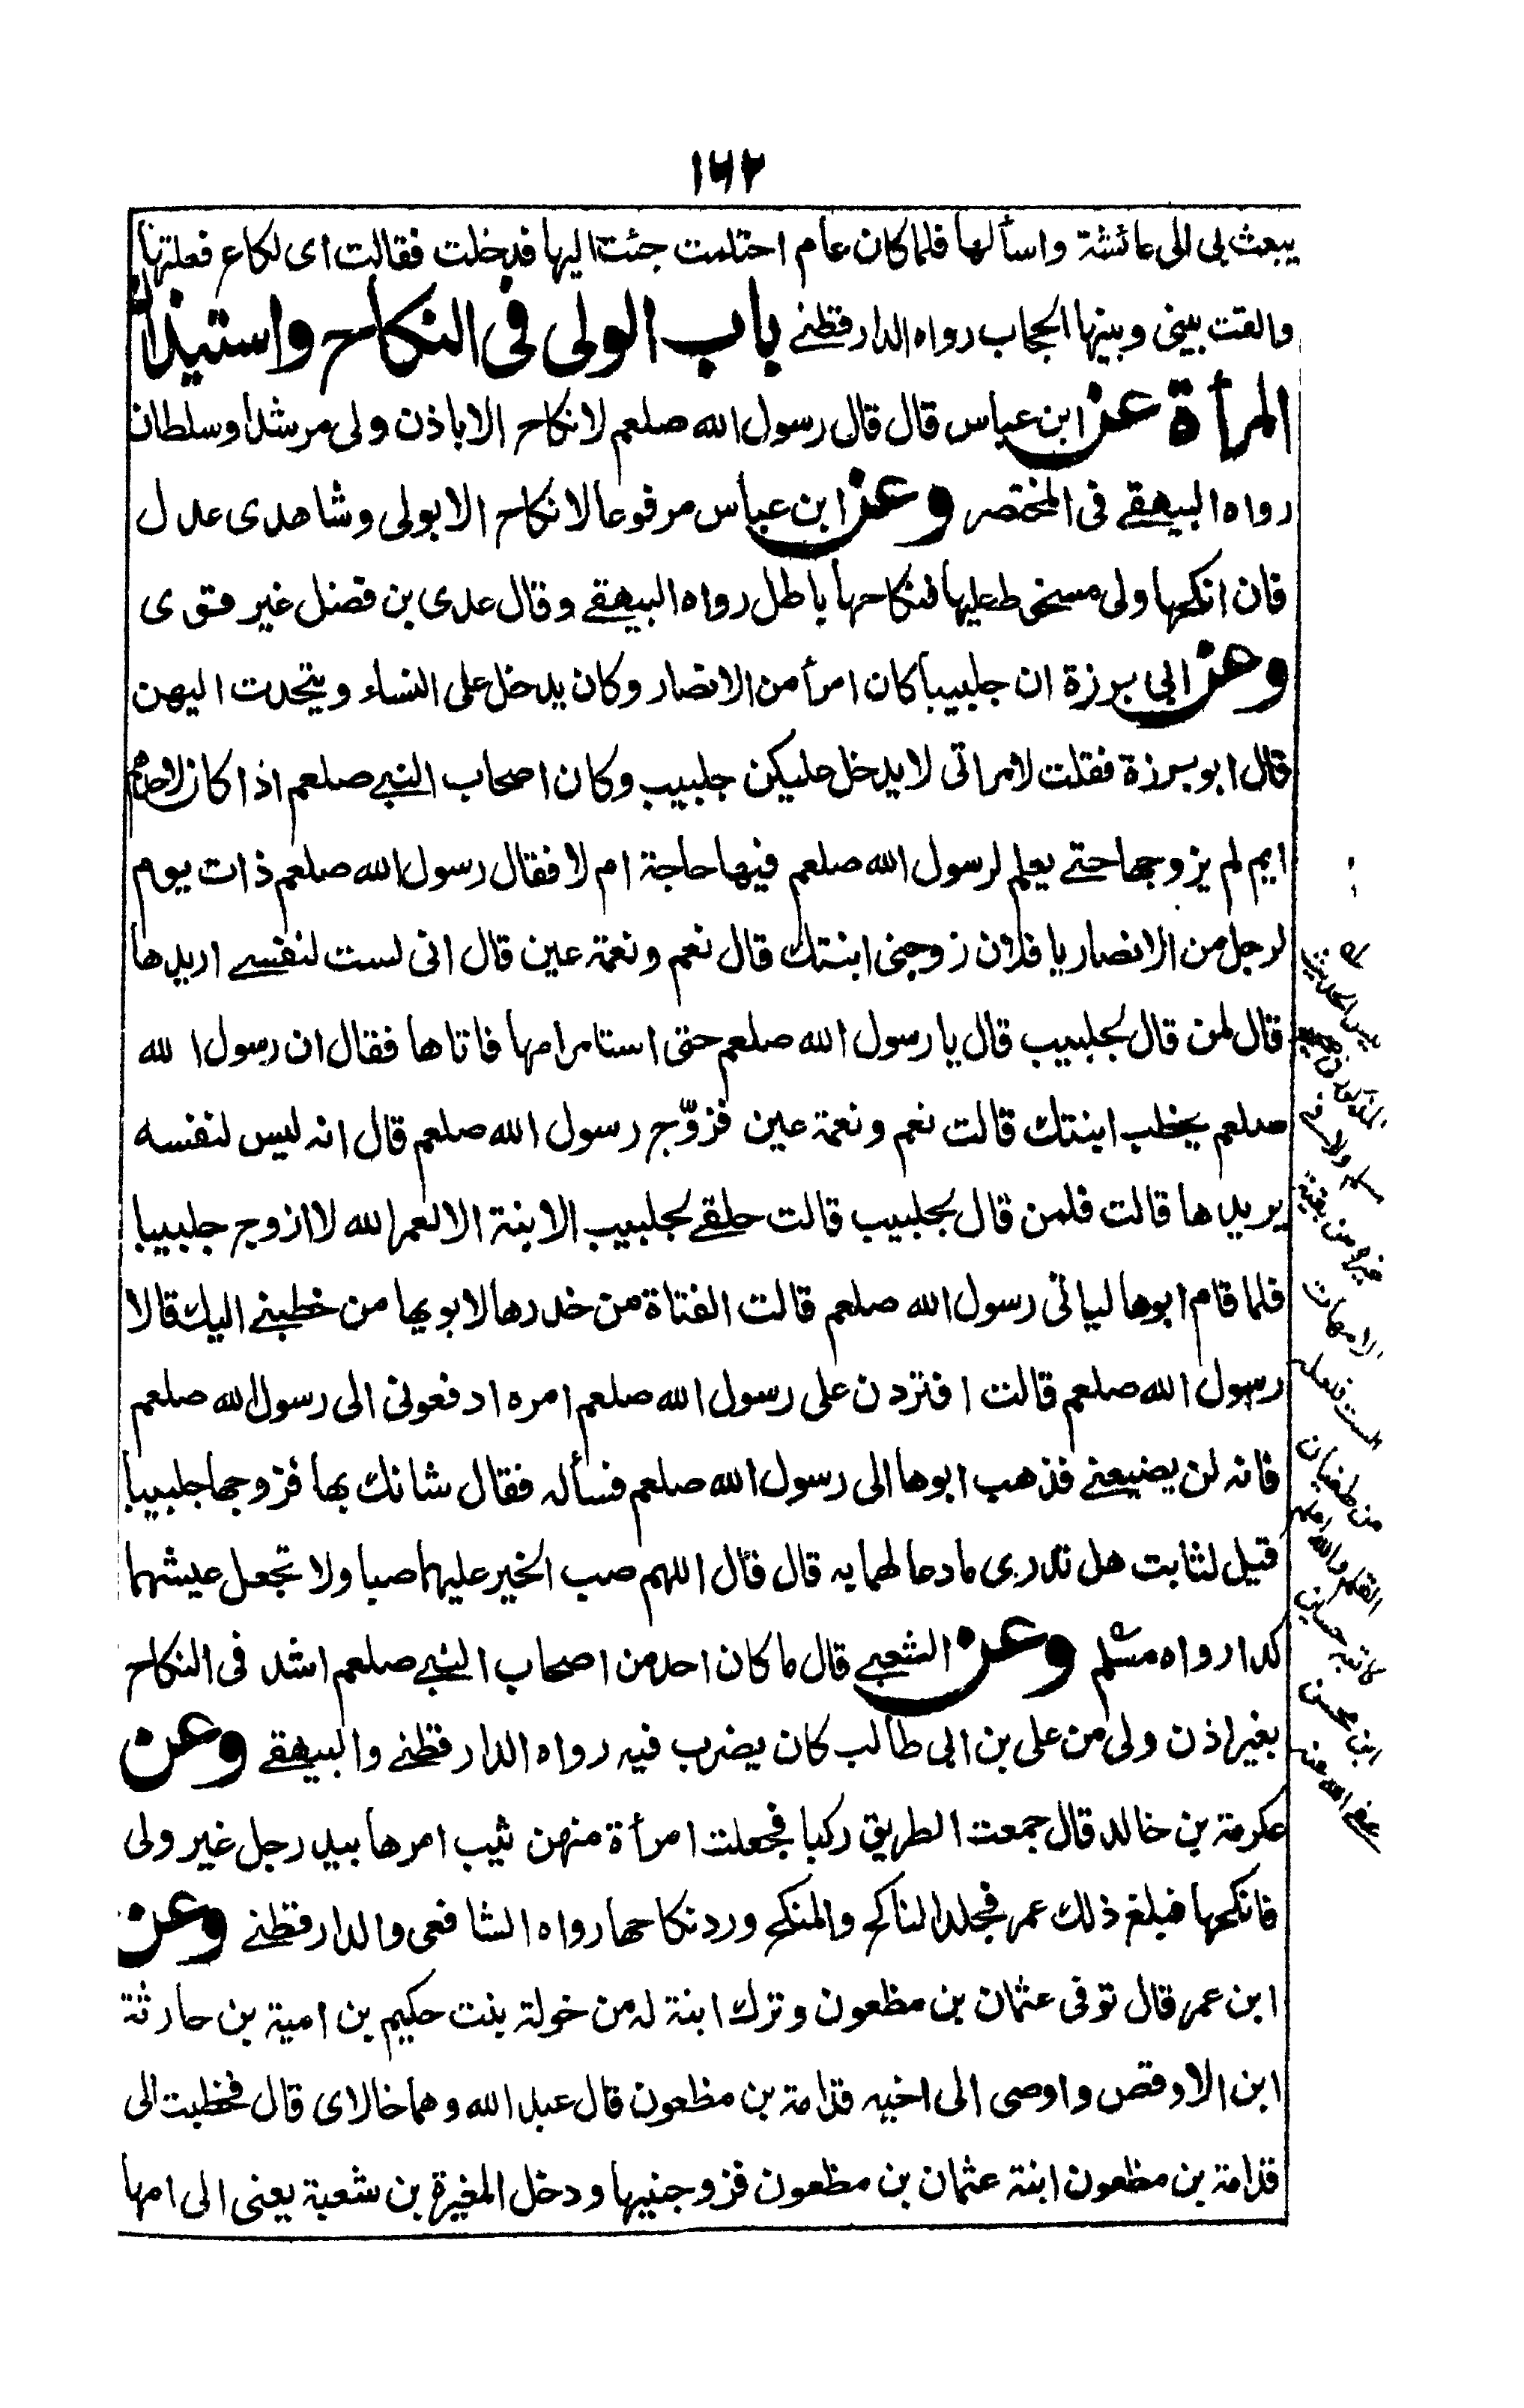 ١٦٢
يبعث بى الى عائشة واسألها فلما كان عام احتلمت جئت اليها فدخلت فقالت اى لكاع فعلتها
والقت بينى وبينها الحجاب رواه الدارقطنے باب الولى فى النكاح واستيذان
المرأة عن ابن عباس قال قال رسول الله صلعم لا نكاح الا باذن ولى مرشد او سلطان
رواه البيهقے فى المختصر وعن ابن عباس مرفوعا لا نكاح الا بولى وشاهدى عدل
فان انكحها ولى مسخوط عليها فنكاحها باطل رواه البيهقے وقال عدى بن فضل غير قوى
وعن ابى برزة ان جليبيبا كان امرأ من الانصار وكان يدخل على النساء ويتحدث اليهن
قال ابو برزة فقلت لامراتى لا يدخل عليكن جليبيب وكان اصحاب النبے صلعم اذا كان لاحدهم
ايم لم يزوجها حتے يعلم لرسول الله صلعم فيها حاجة ام لا فقال رسول الله صلعم ذات يوم
لرجل من الانصار يا فلان زوجنى ابنتك قال نعم ونعمة عين قال انى لست لنفسے اريدها
قال لمن قال لجليبيب قال يا رسول الله صلعم حتى استامر امها فاتاها فقال ان رسول الله
صلعم يخطب ابنتك قالت نعم ونعمة عين فزوّج رسول الله صلعم قال انه ليس لنفسه
يريدها قالت فلمن قال لجليبيب قالت حلقے لجليبيب الابنة الا لعمر الله لا ازوج جليبيبا
فلما قام ابوها لياتى رسول الله صلعم قالت الفتاة من خدرها لابويها من خطبنے اليك قالا
رسول الله صلعم قالت افتردن على رسول الله صلعم امره ادفعونى الى رسول الله صلعم
فانه لن يضيعنے فذهب ابوها الى رسول الله صلعم فسأله فقال شانك بها فزوجها جليبيبا
قيل لثابت هل تدرى ما دعا لهما به قال قال اللهم صب الخير عليهما صبا ولا تجعل عيشهما
كدا رواه مسلم وعن الشعبے قال ما كان احد من اصحاب النبے صلعم اشد فى النكاح
بغير اذن ولى من على بن ابى طالب كان يضرب فيه رواه الدارقطنے والبيهقے وعن
عكرمة بن خالد قال جمعت الطريق ركبا فجعلت امرأة منهن ثيب امرها بيد رجل غير ولى
فانكحها فبلغ ذلك عمر فجلد الناكح والمنكح ورد نكاحها رواه الشافعى والدارقطنے وعن
ابن عمر قال توفى عثمان بن مظعون وترك ابنة له من خولة بنت حكيم بن امية بن حارثة
ابن الاوقص واوصى الى اخيه قدامة بن مظعون قال عبد الله وهما خالاى قال فخطبت الى
قدامة بن مظعون ابنة عثمان بن مظعون فزوجنيها ودخل المغيرة بن شعبة يعنى الى امها
ليس الحديث
الامهات